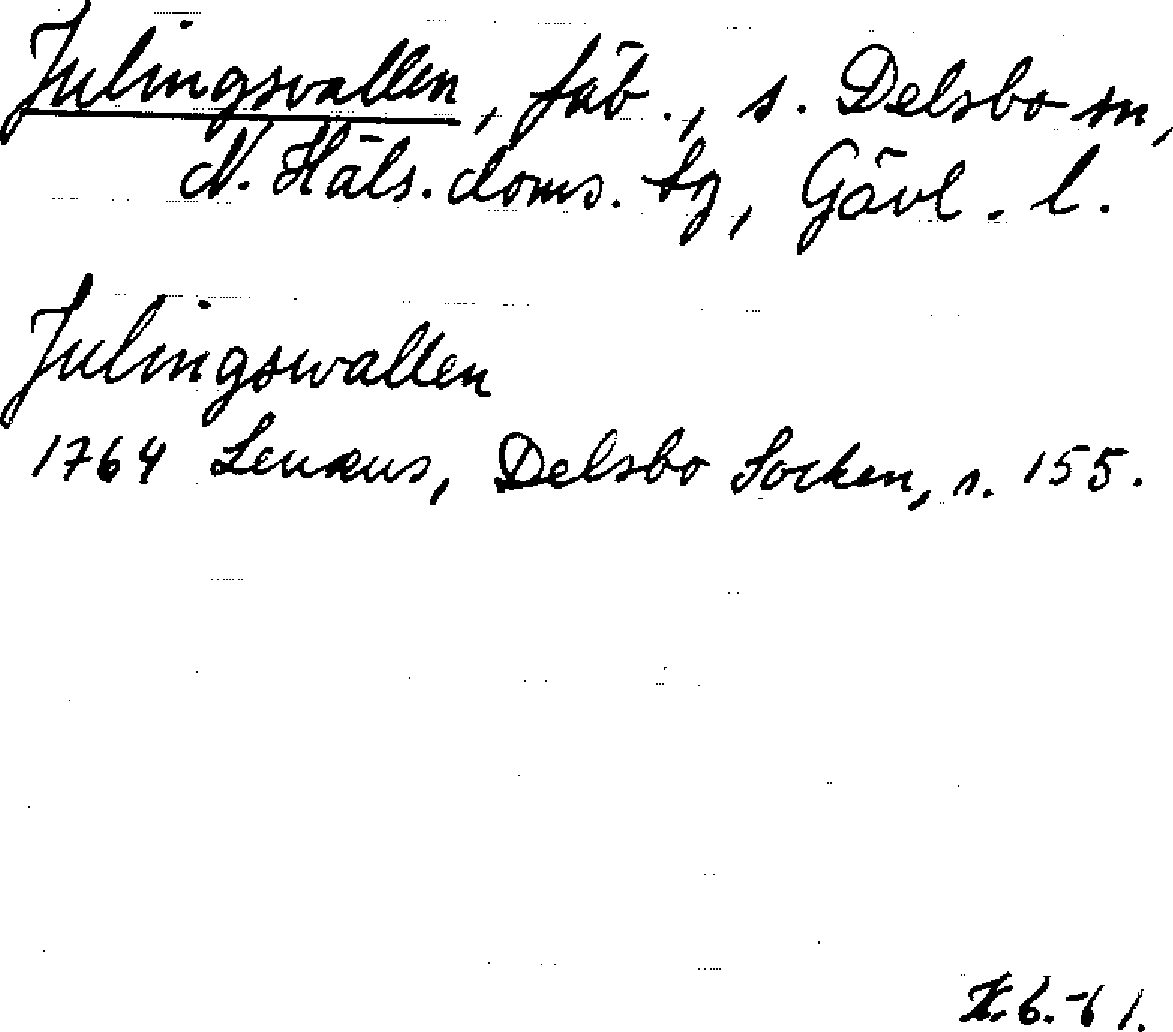 Julingsvallen, fäb., s. Delsbo sn,
N. Häls. doms. tg, Gävl. l.
Julingswallen
1764 Lenæus, Delsbo Socken, s. 155.